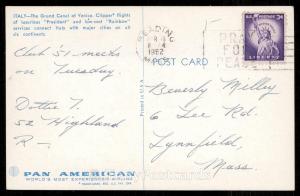 ITALY—The Grand Canal of Venice. Clipper* flights
of luxurious "President" and low-cost "Rainbow"
services connect Italy with major cities on all
six continents.
Club '51 meets
on Tuesday.
Dottie T.
52 Highland
R—
PAN AMERICAN
WORLD'S MOST EXPERIENCED AIRLINE
READING
1962
MASS
PRAY
FOR
PEACE
U.S. POSTAGE
3¢
LIBERTY
POST CARD
Beverly Milley
6 Lee Rd.
Lynnfield,
Mass.